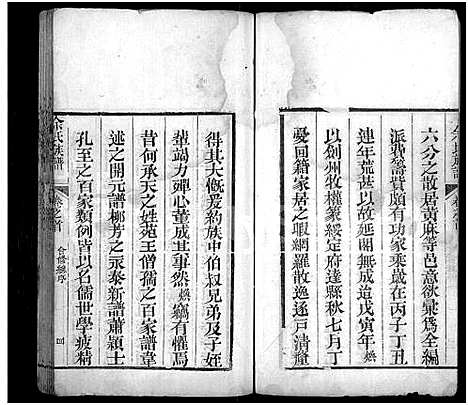 六分之散居黃麻等邑意欲彙為全編
派費籌貲頗有功家乘在丙子丁丑
連年荒甚以故延閣無成造戊寅年燠
以劍州牧權篆綏定府達縣秋七月丁
憂回籍家居之暇網羅散逸逐戶清釐
得其大慨爰約族中伯叔兄弟及子姪
輩竭力殫心董成其事然燠竊有懼焉
昔何承天之姓苑王僧孺之百家譜韋
述之開元譜柳芳之永泰新譜蕭穎士
孔至之百家類例皆以名儒世學疲精
余氏族譜
卷之首
合修總序
四